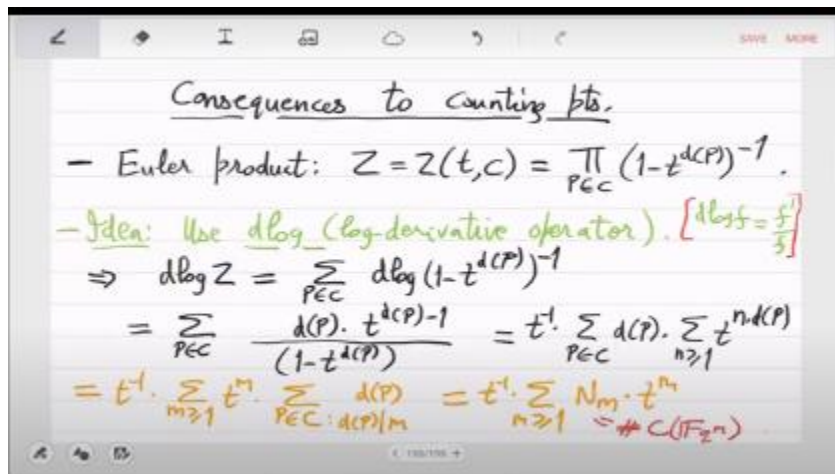 SAVE MORE
Consequences to counting pts.
- Euler product: Z = Z(t,C) = ∏_{P∈C} (1-t^{d(P)})^{-1}.
- Idea: Use dlog (log-derivative operator). [dlog f = f'/f]
⇒ dlog Z = ∑_{P∈C} dlog (1-t^{d(P)})^{-1}
= ∑_{P∈C} d(P). t^{d(P)-1} / (1-t^{d(P)}) = t^{-1}. ∑_{P∈C} d(P). ∑_{n≥1} t^{n.d(P)}
= t^{-1}. ∑_{m≥1} t^m. ∑_{P∈C: d(P)|m} d(P) = t^{-1}. ∑_{m≥1} N_m. t^m
= # C(F_{q^m})